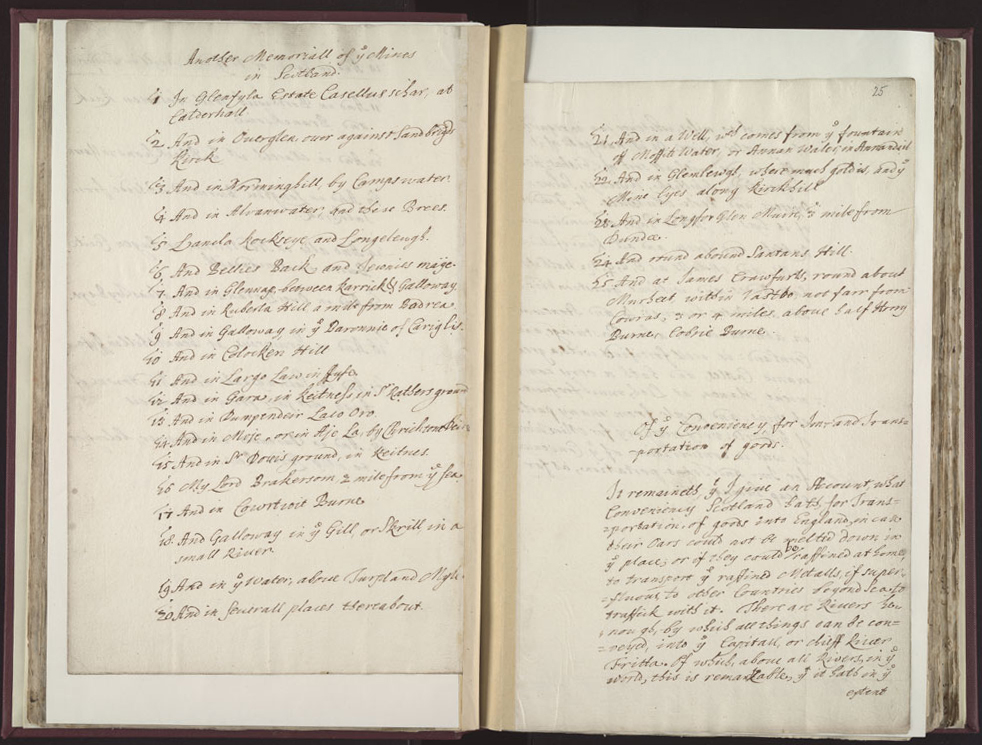 Another Memoriall of yͤ Mines
in Scotland.
1 In Glenafyla Estate Casellus schar, at
Calderhall.
2 And in Overglen, over against Landbrigs
Kirck
3 And in Normingbill, by Campswater
4 And in Alvanwater, and these Brees.
5 Laucla Rockseye, and Longeleugh.
6 And Belties Back, and Jewnies maye.
7 And in Glennap, between Karrick & Galloway
8 And in Ruberla Hill a mile from
9 And in Galloway in yͤ Baronnie of Cariglis.
10 And in Colocken Hill
11 And in Largo Law in fyfe
12 And in Gara, in Keitness in Sͬ Rathers ground
13 And in Dumpendeir Laco Oro.
14 And in Moje, or in Aje La, by Chrichtone
15 And in Sͬ Dowis ground, in Keitnes.
16 My Lord Brakersom 2 mile from yͤ sea
17 And in Cowrtwit Burne
18 And Galloway in yͤ Gill, or Skrill in a
small River
19 And in yͤ Water, above Turpland
20 And in severall places thereabout.
25
21 And in a Well, wͨʰ comes from yͤ fountain
of Moffits Water, or Annan Water, in Annandail
22 And in Glenlewgh, where much gold is, and yͤ
Mine lyes along Kirckhill
23 And in Longfor Glen Muire, 3 mile from
Dunda.
24 And round abound Santans Hill.
25 And at James Crawfurts, round about
Murheat within, not farr from
Cowras, 3 or 4 miles above half
Burne, Cobrie Burne.
Of yͤ Conveniency, for Im- and Trans-
-portation of goods.
It remaineth, yͭ I give an Account, what
Conveniency Scotland hath, for Trans=
=portation, of goods into England, in case
their Oars could not be melted down in
yͤ place; or if they could be raffined at home,
to transport yͤ raffined Metalls, if super-
-fluous, to other Countries beyond Sea, to
traffick with it. There are Rivers he-
nough, by which all things can be con=
=veyed, into yͤ Capitall, or chieff River
Fritta. Of which, above all Rivers, in yͤ
world, this is remarkable, yͭ it hath in yͤ
extent